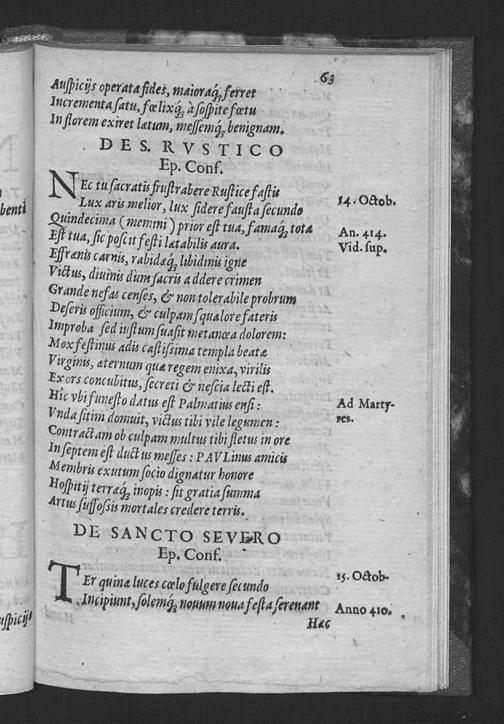 63
Auſpicijs operata fides, maioraq́; ferret
Incrementa ſatu, fœlixq́; à ſoſpite fœtu
In florem exiret latum, meſſemq́; benignam.
DE S. RVSTICO
Ep. Conf.
NEc tu ſacratis fruſtrabere Ruſtice faſtis
Lux aris melior, lux ſidere fauſta ſecundo
14. Octob.
Quindecima (memini) prior eſt tua, famaq́; tota
An. 414.
Eſt tua, ſic poſcit feſti lætabilis aura.
Vid. ſup.
Effrænis carnis, rabidæq́; libidinis igne
Victus, diuinis dum ſacris addere crimen
Grande nefas cenſes, & non tolerabile probrum
Deſeris officium, & culpam ſqualore fateris
Improba ſed iuſtum ſuaſit metanœa dolorem:
Mox feſtinus adis caſtiſſima templa beatæ
Virginis, æternum quæ regem enixa, virilis
Exors concubitus, ſecreti & neſcia lecti eſt.
Hîc vbi funeſto datus eſt Palmatius enſi:
Ad Marty-
Vnda ſitim domuit, victus tibi vile legumen:
res.
Contractam ob culpam multus tibi fletus in ore
In ſeptem eſt ductus meſſes: PAVLinus amicis
Membris exutum ſocio dignatur honore
Hoſpitij terraq́; inopis: ſit gratia ſumma
Artus ſuffoſsis mortales credere terris.
DE SANCTO SEVERO
Ep. Conf.
TEr quinæ luces cœlo fulgere ſecundo
15. Octob.
Incipiunt, ſolemq́; nouum noua feſta ſerenant
Anno 410.
Hæc
benti
uſpicijs